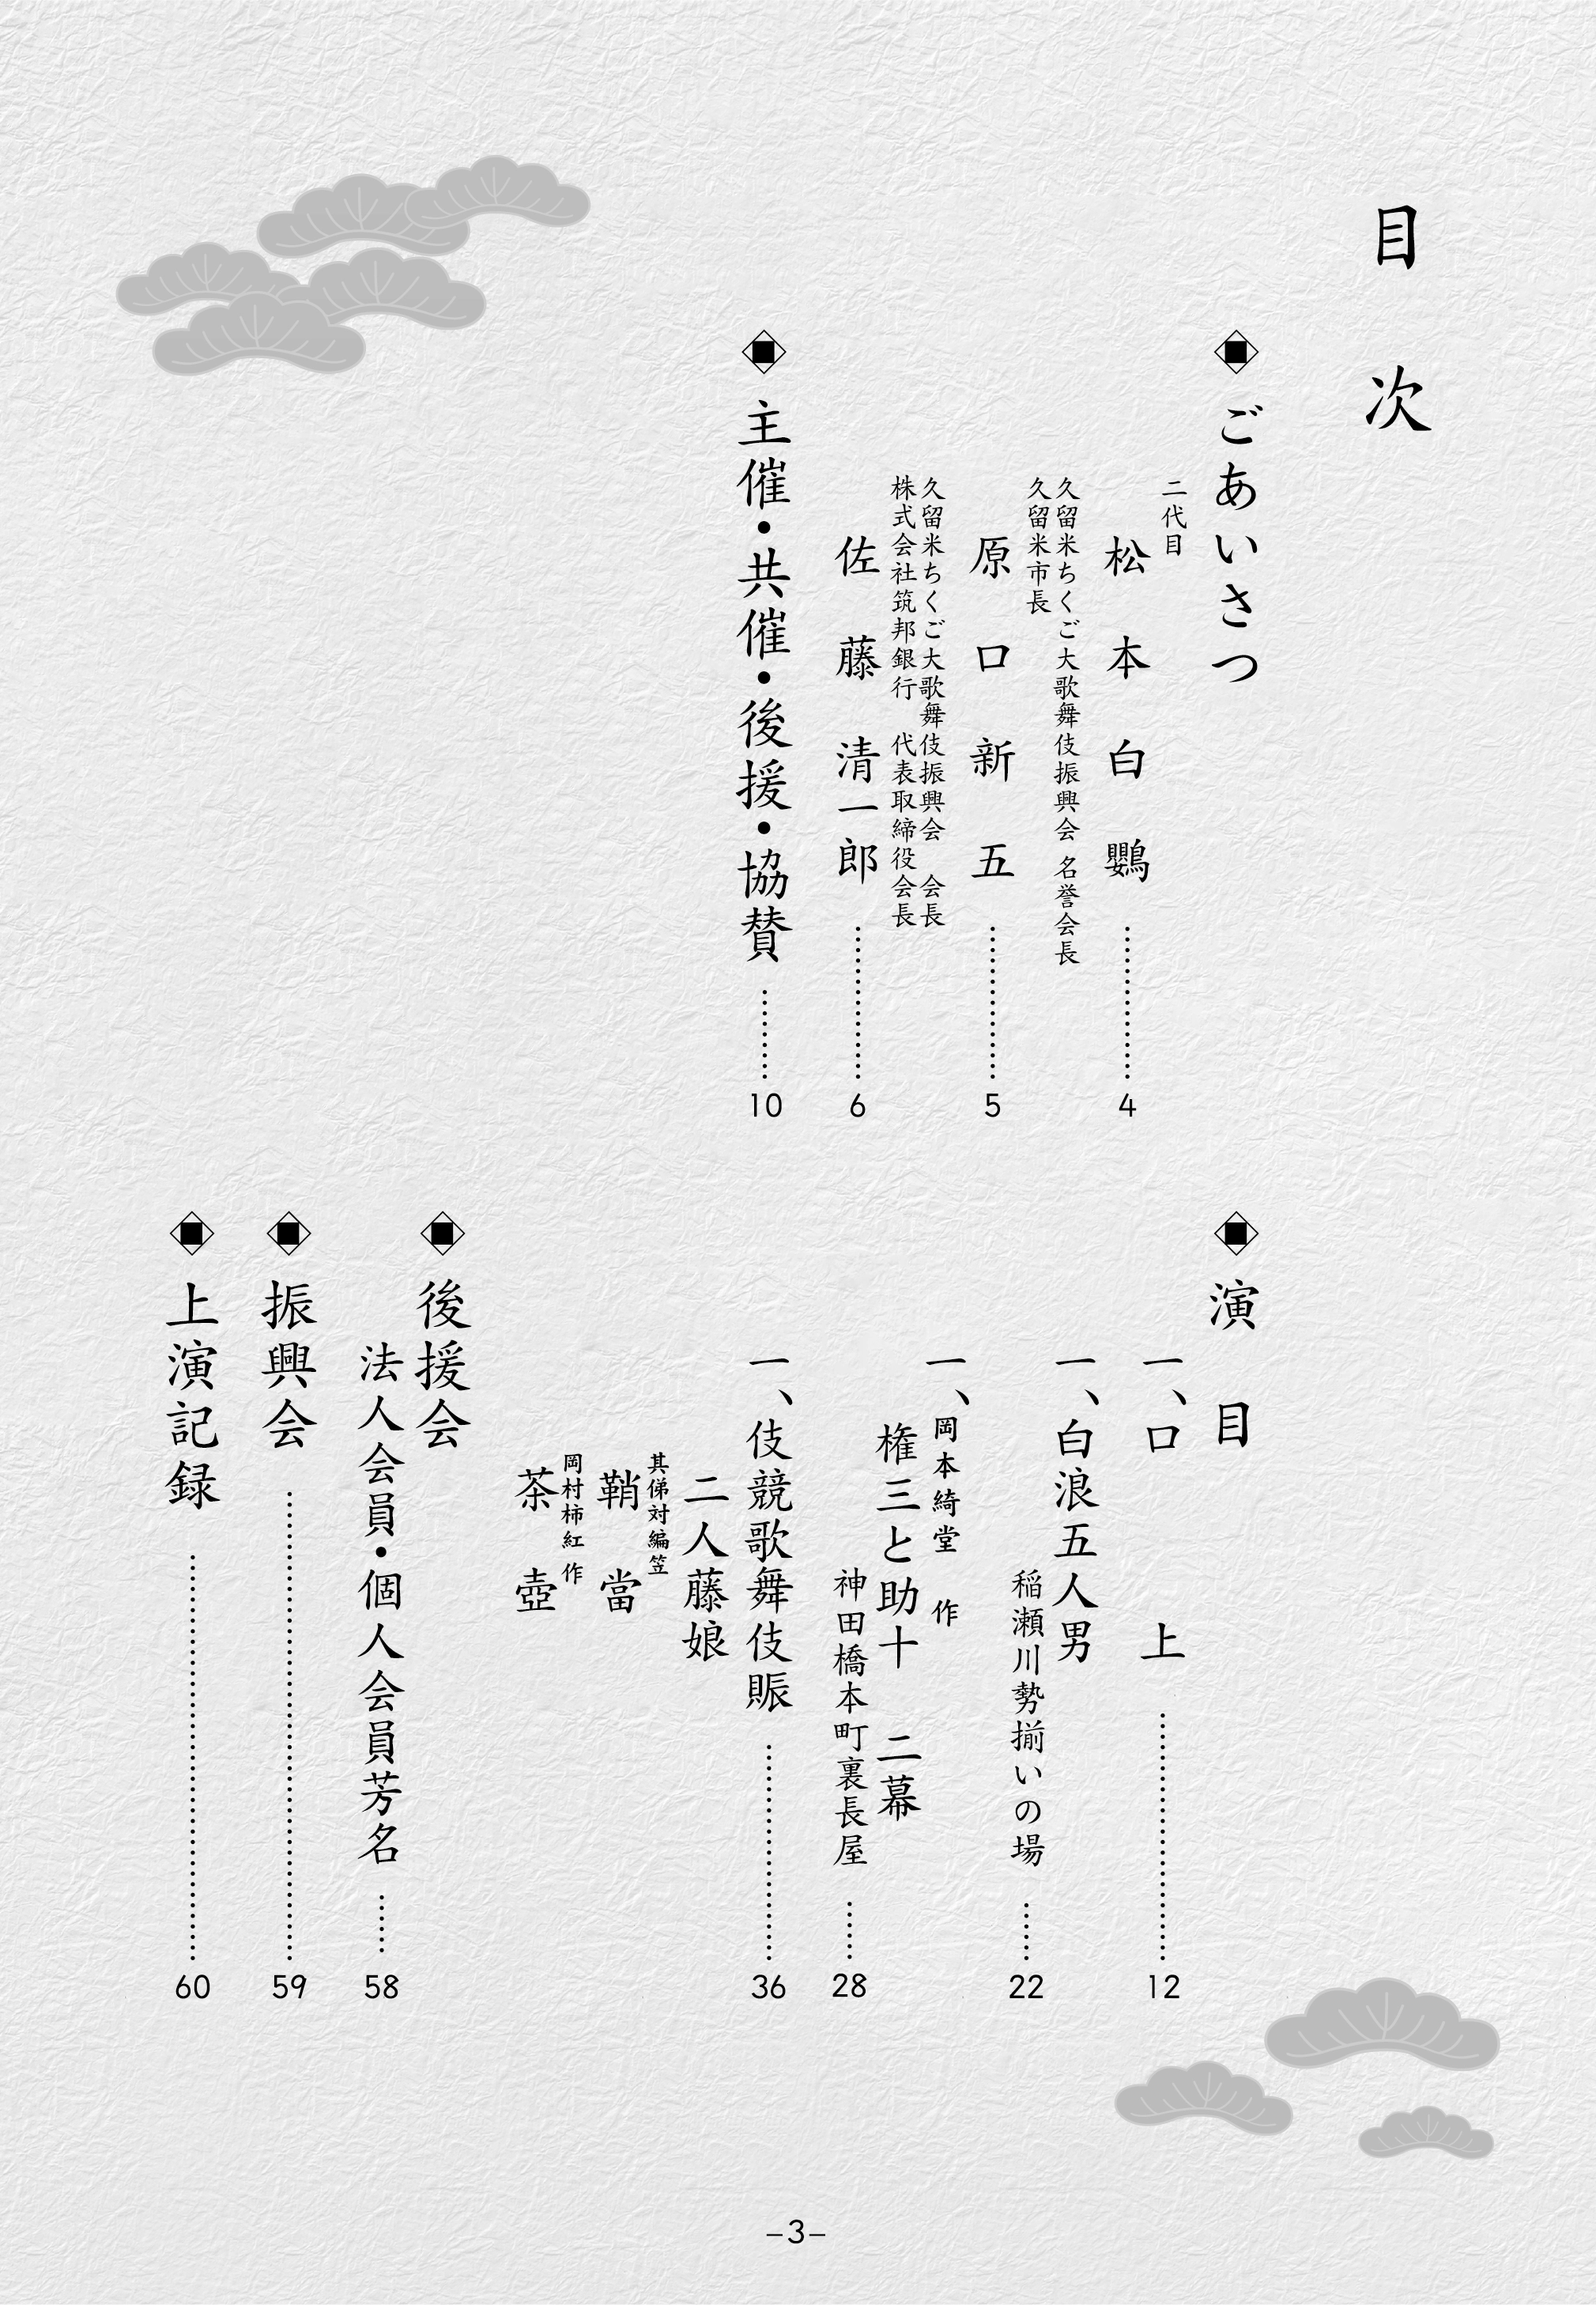 目次
ごあいさつ
二代目
松本白鸚 4
久留米ちくご大歌舞伎振興会 名誉会長
久留米市長
原口新五 5
久留米ちくご大歌舞伎振興会 会長
株式会社筑邦銀行 代表取締役会長
佐藤清一郎 6
主催・共催・後援・協賛 10
演目
一、口上 12
一、白浪五人男
稲瀬川勢揃いの場 22
一、岡本綺堂 作
権三と助十 二幕
神田橋本町裏長屋 28
一、伎競歌舞伎賑 36
二人藤娘
其俤対編笠
鞘當
岡村柿紅 作
茶壺
後援会
法人会員・個人会員芳名 58
振興会 59
上演記録 60
–3–